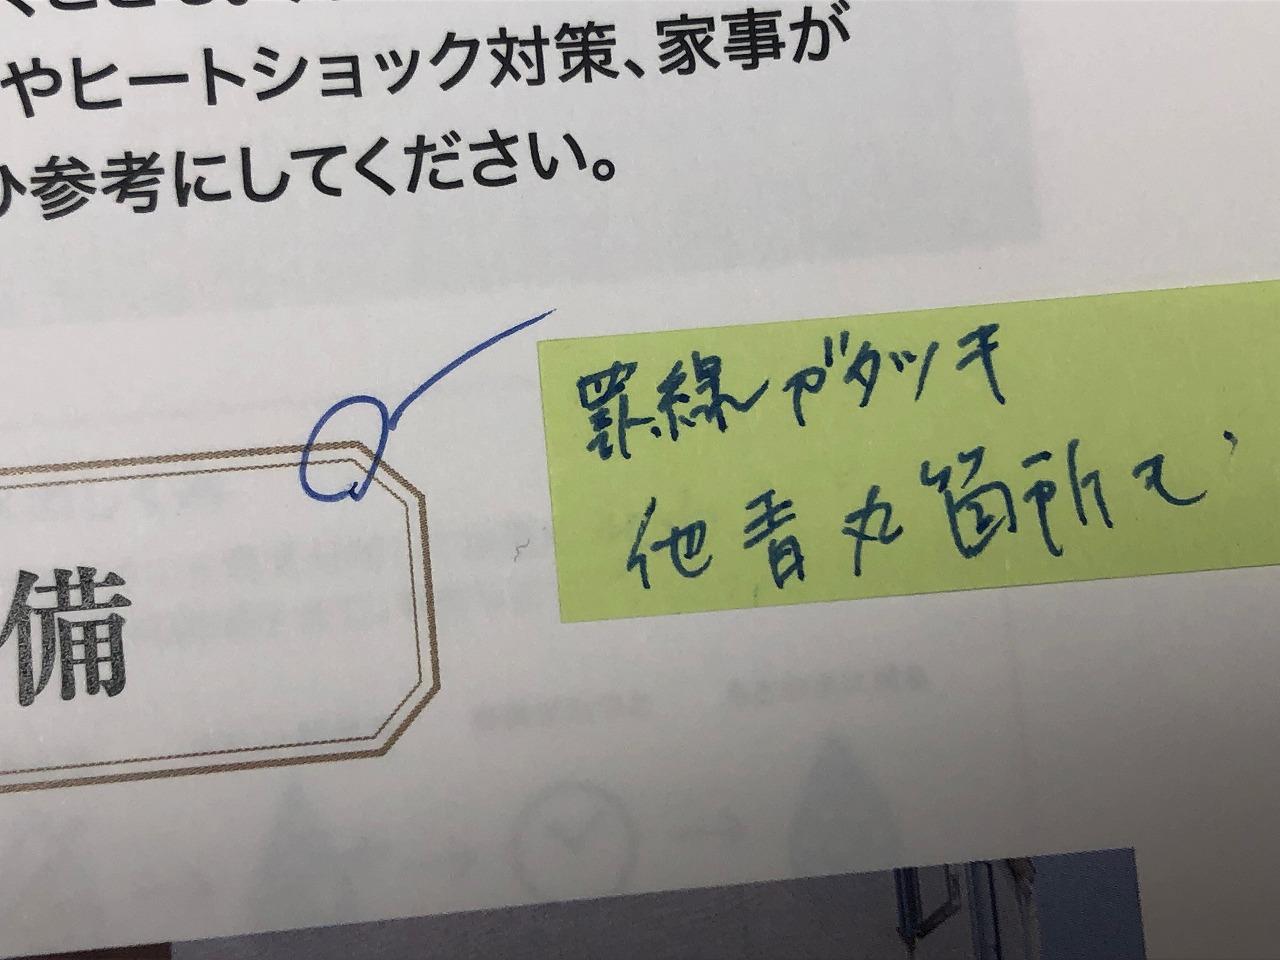 やヒートショック対策、家事が
ひ参考にしてください。
罫線ガタツキ
他青丸箇所も
備